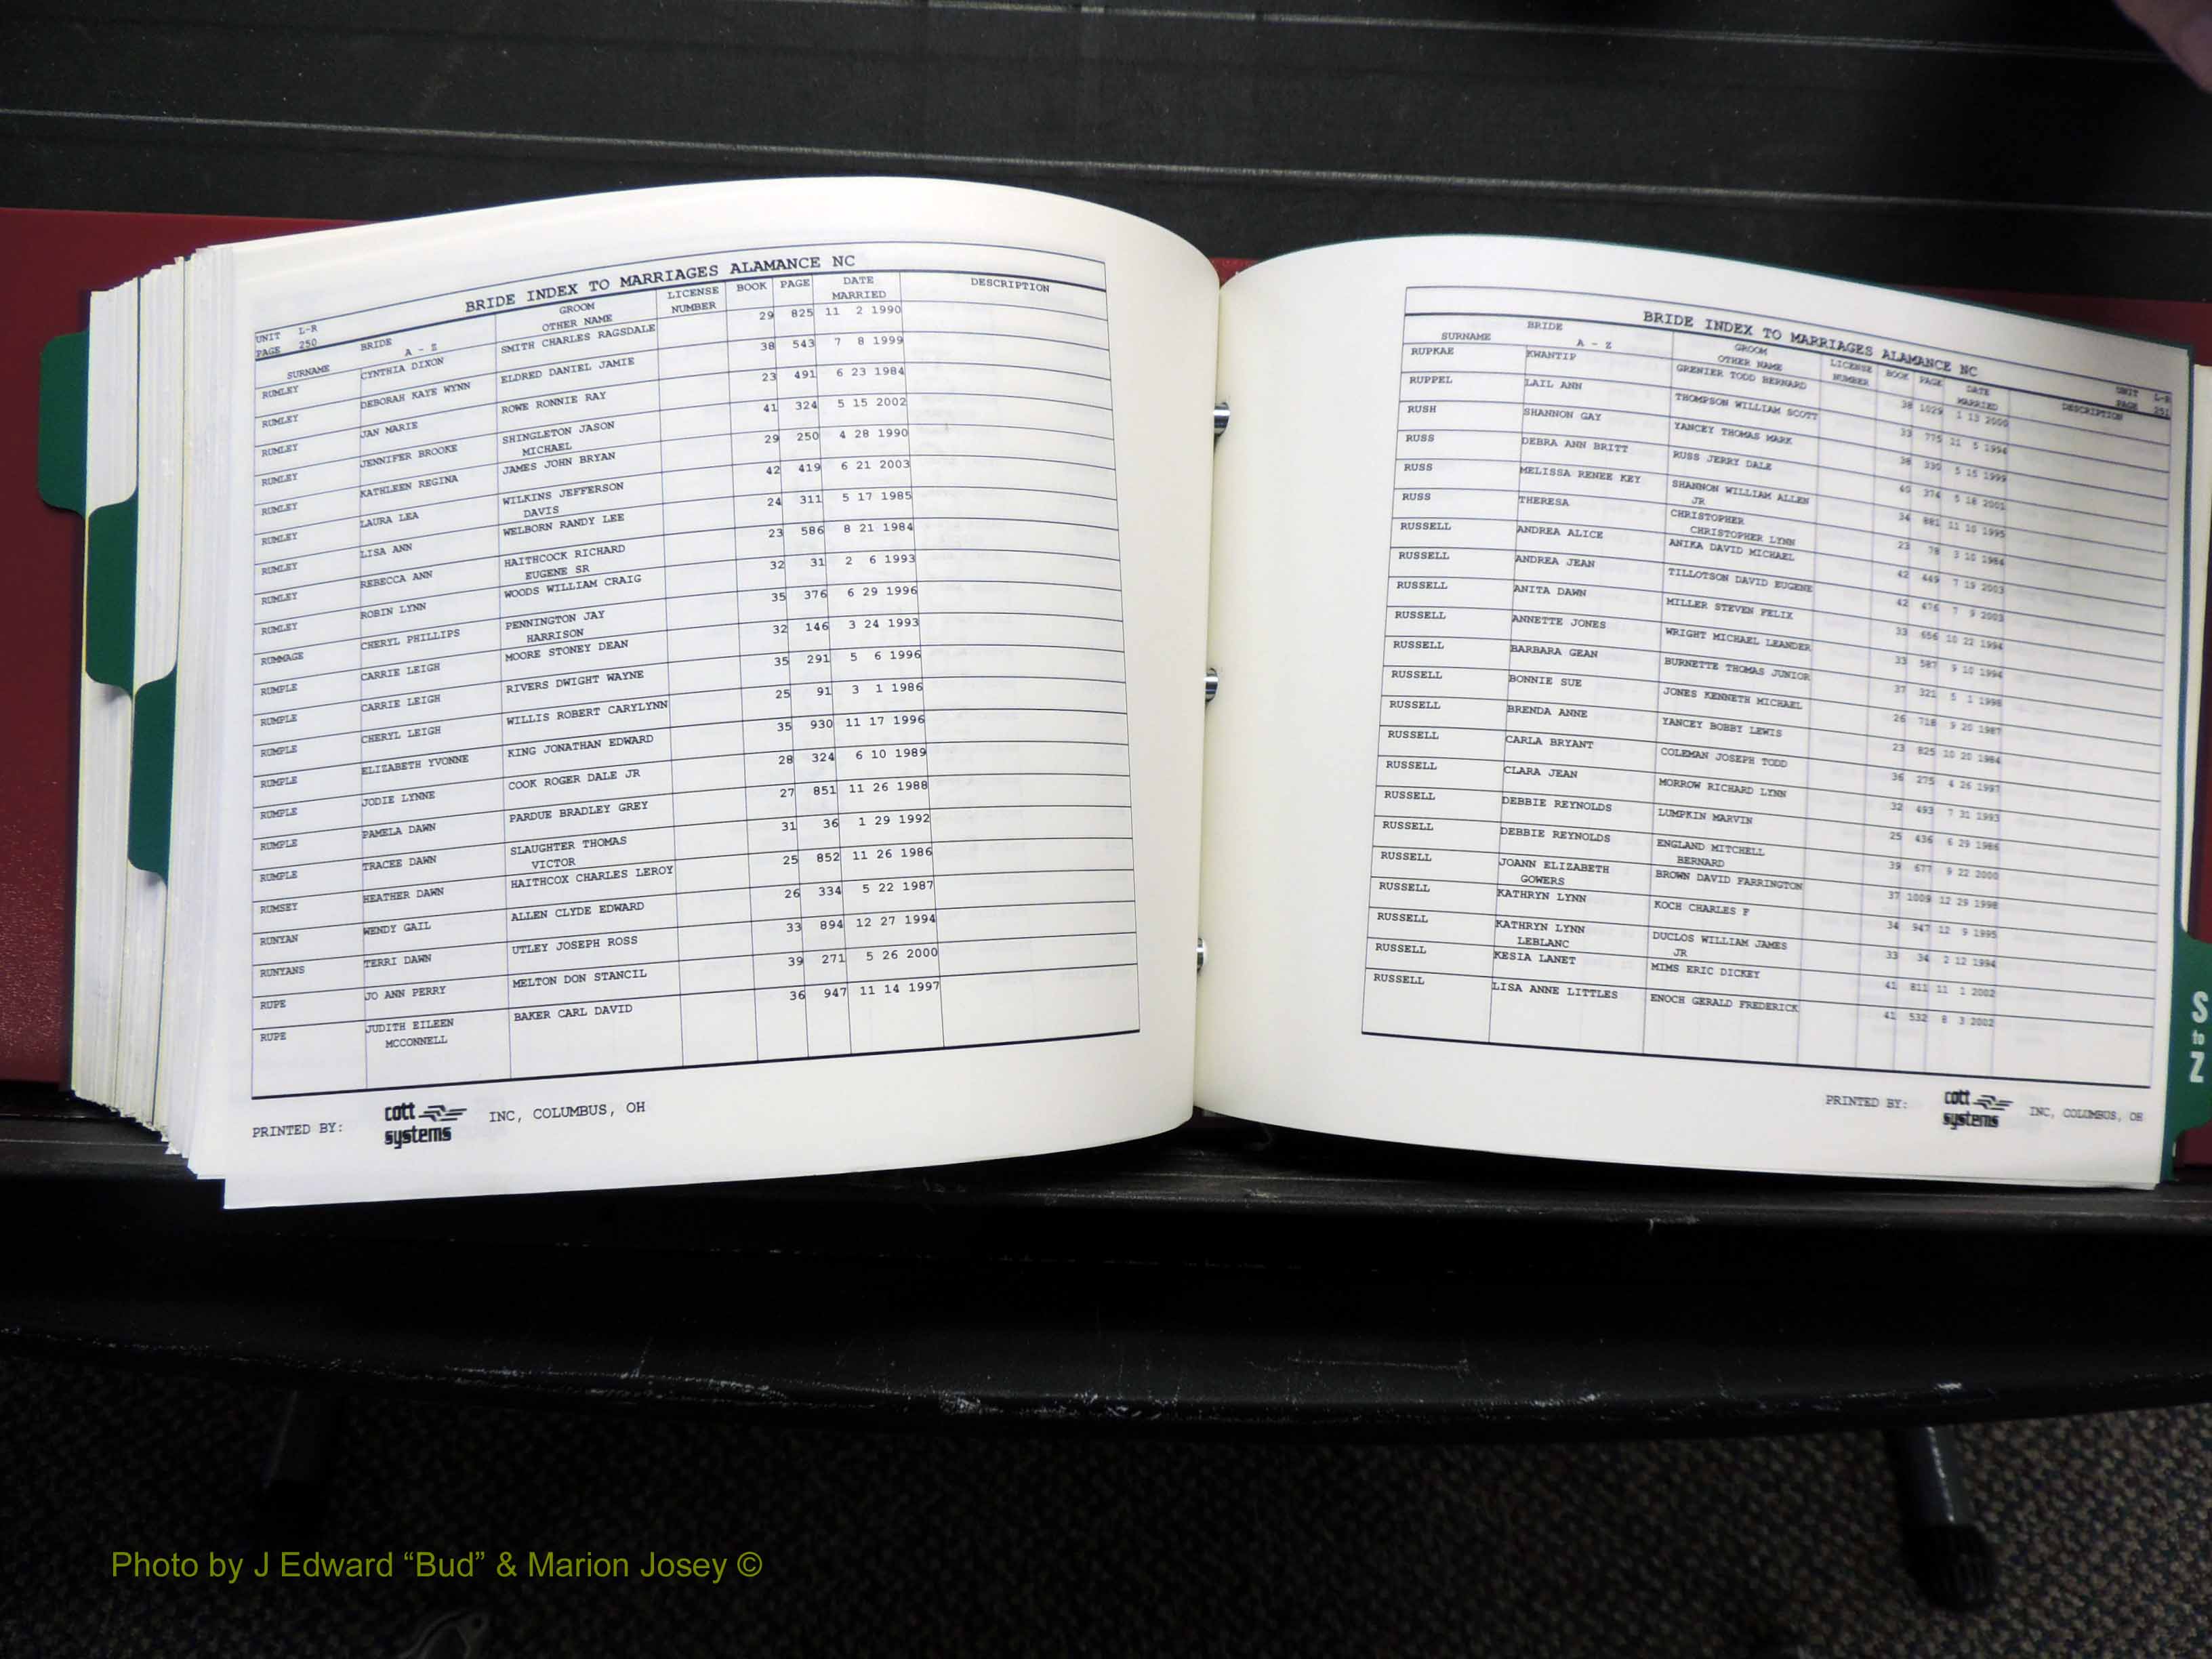 BRIDE INDEX TO MARRIAGES ALAMANCE NC
UNIT L-R
PAGE 250
SURNAME BRIDE A - Z GROOM OTHER NAME LICENSE NUMBER BOOK PAGE DATE MARRIED DESCRIPTION
RUMLEY CYNTHIA DIXON SMITH CHARLES RAGSDALE 29 825 11 2 1990
RUMLEY DEBORAH KAYE WYNN ELDRED DANIEL JAMIE 38 543 7 8 1999
RUMLEY JAN MARIE ROWE RONNIE RAY 23 491 6 23 1984
RUMLEY JENNIFER BROOKE SHINGLETON JASON MICHAEL 41 324 5 15 2002
RUMLEY KATHLEEN REGINA JAMES JOHN BRYAN 29 250 4 28 1990
RUMLEY LAURA LEA WILKINS JEFFERSON DAVIS 42 419 6 21 2003
RUMLEY LISA ANN WELBORN RANDY LEE 24 311 5 17 1985
RUMLEY REBECCA ANN HAITHCOCK RICHARD EUGENE SR 23 586 8 21 1984
RUMLEY ROBIN LYNN WOODS WILLIAM CRAIG 32 31 2 6 1993
RUMMAGE CHERYL PHILLIPS PENNINGTON JAY HARRISON 35 376 6 29 1996
RUMPLE CARRIE LEIGH MOORE STONEY DEAN 32 146 3 24 1993
RUMPLE CARRIE LEIGH RIVERS DWIGHT WAYNE 35 291 5 6 1996
RUMPLE CHERYL LEIGH WILLIS ROBERT CARYLYNN 25 91 3 1 1986
RUMPLE ELIZABETH YVONNE KING JONATHAN EDWARD 35 930 11 17 1996
RUMPLE JODIE LYNNE COOK ROGER DALE JR 28 324 6 10 1989
RUMPLE PAMELA DAWN PARDUE BRADLEY GREY 27 851 11 26 1988
RUMPLE TRACEE DAWN SLAUGHTER THOMAS VICTOR 31 36 1 29 1992
RUMSEY HEATHER DAWN HAITHCOX CHARLES LEROY 25 852 11 26 1986
RUNYAN WENDY GAIL ALLEN CLYDE EDWARD 26 334 5 22 1987
RUNYANS TERRI DAWN UTLEY JOSEPH ROSS 33 894 12 27 1994
RUPE JO ANN PERRY MELTON DON STANCIL 39 271 5 26 2000
RUPE JUDITH EILEEN MCCONNELL BAKER CARL DAVID 36 947 11 14 1997
PRINTED BY: cott systems INC, COLUMBUS, OH
BRIDE INDEX TO MARRIAGES ALAMANCE NC
UNIT L-R
PAGE 251
SURNAME BRIDE A - Z GROOM OTHER NAME LICENSE NUMBER BOOK PAGE DATE MARRIED DESCRIPTION
RUPKAE KWANTIP GRENIER TODD BERNARD 38 1029 1 13 2000
RUPPEL LAIL ANN THOMPSON WILLIAM SCOTT 33 775 11 5 1994
RUSH SHANNON GAY YANCEY THOMAS MARK 38 330 5 15 1999
RUSS DEBRA ANN BRITT RUSS JERRY DALE 40 374 5 18 2001
RUSS MELISSA RENEE KEY SHANNON WILLIAM ALLEN JR 34 881 11 10 1995
RUSS THERESA CHRISTOPHER CHRISTOPHER LYNN 23 78 3 10 1984
RUSSELL ANDREA ALICE ANIKA DAVID MICHAEL 42 449 7 19 2003
RUSSELL ANDREA JEAN TILLOTSON DAVID EUGENE 42 476 7 9 2003
RUSSELL ANITA DAWN MILLER STEVEN FELIX 33 656 10 22 1994
RUSSELL ANNETTE JONES WRIGHT MICHAEL LEANDER 33 587 9 10 1994
RUSSELL BARBARA GEAN BURNETTE THOMAS JUNIOR 37 321 5 1 1998
RUSSELL BONNIE SUE JONES KENNETH MICHAEL 26 718 9 20 1987
RUSSELL BRENDA ANNE YANCEY BOBBY LEWIS 23 825 10 20 1984
RUSSELL CARLA BRYANT COLEMAN JOSEPH TODD 36 275 4 26 1997
RUSSELL CLARA JEAN MORROW RICHARD LYNN 32 493 7 31 1993
RUSSELL DEBBIE REYNOLDS LUMPKIN MARVIN 25 436 6 29 1986
RUSSELL DEBBIE REYNOLDS ENGLAND MITCHELL BERNARD 39 677 9 22 2000
RUSSELL JOANN ELIZABETH GOWERS BROWN DAVID FARRINGTON 37 1009 12 29 1998
RUSSELL KATHRYN LYNN KOCH CHARLES F 34 947 12 9 1995
RUSSELL KATHRYN LYNN LEBLANC DUCLOS WILLIAM JAMES JR 33 34 2 12 1994
RUSSELL KESIA LANET MIMS ERIC DICKEY 41 811 11 1 2002
RUSSELL LISA ANNE LITTLES ENOCH GERALD FREDERICK 41 532 8 3 2002
PRINTED BY: cott systems INC, COLUMBUS, OH
S to Z
Photo by J Edward “Bud” & Marion Josey ©